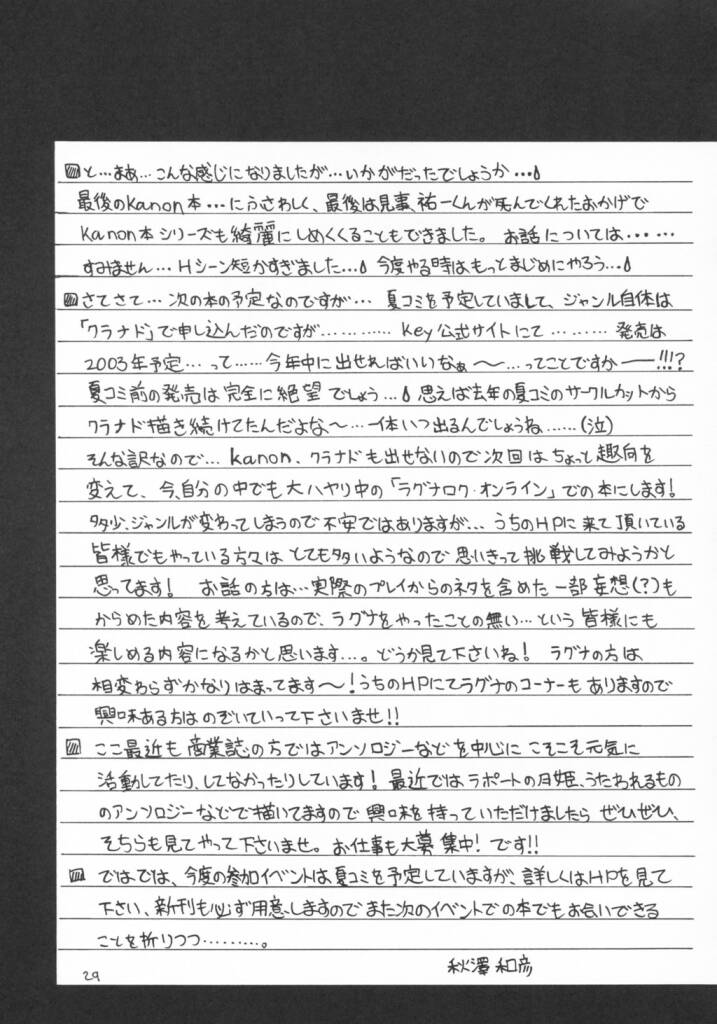 ▨と…まぁ…こんな感じになりましたが…いかがだったでしょうか…。
最後のkanon本…にふさわしく、最後は見事、祐一くんが死んでくれたおかげで
kanon本シリーズも綺麗にしめくくることもできました。 お話については……
すみません…Hシーン短かすぎました…。今度やる時はもっとまじめにやろう…。
▨さてさて…次の本の予定なのですが… 夏コミを予定していまして、ジャンル自体は
「クラナド」で申し込んだのですが………… Key公式サイトにて ……… 発売は
2003年予定…って……今年中に出せればいいなぁ〜…ってことですかー!!!?
夏コミ前の発売は完全に絶望でしょう…。思えば去年の夏コミのサークルカットから
クラナド描き続けてたんだよな〜…一体いつ出るんでしょうね……(泣)
そんな訳なので…kanon、クラナドも出せないので次回はちょっと趣向を
変えて、今、自分の中でも大ハヤリ中の「ラグナロク・オンライン」での本にします!
多少、ジャンルが変わってしまうので不安ではありますが…うちのHPに来て頂いている
皆様でもやっている方々はとても多いようなので思いきって挑戦してみようかと
思ってます! お話の方は…実際のプレイからのネタを含めた一部妄想(?)も
からめた内容を考えているので、ラグナをやったことの無い…という皆様にも
楽しめる内容になるかと思います…。どうか見て下さいね! ラグナの方は
相変わらずかなりはまってます〜!うちのHPにてラグナのコーナーもありますので
興味ある方はのぞいていって下さいませ!!
▨ ここ最近も商業誌の方ではアンソロジーなどを中心にこそこそ元気に
活動してたり、してなかったりしています! 最近ではラポートの月姫、うたわれるもの
のアンソロジーなどで描いてますので興味を持っていただけましたらぜひぜひ、
そちらも見てやって下さいませ。お仕事も大募集中! です!!
▨ ではでは、今度の参加イベントは夏コミを予定していますが、詳しくはHPを見て
下さい、新刊も必ず用意しますのでまた次のイベントでの本でもお会いできる
ことを祈りつつ………。
秋澤 和彦
29